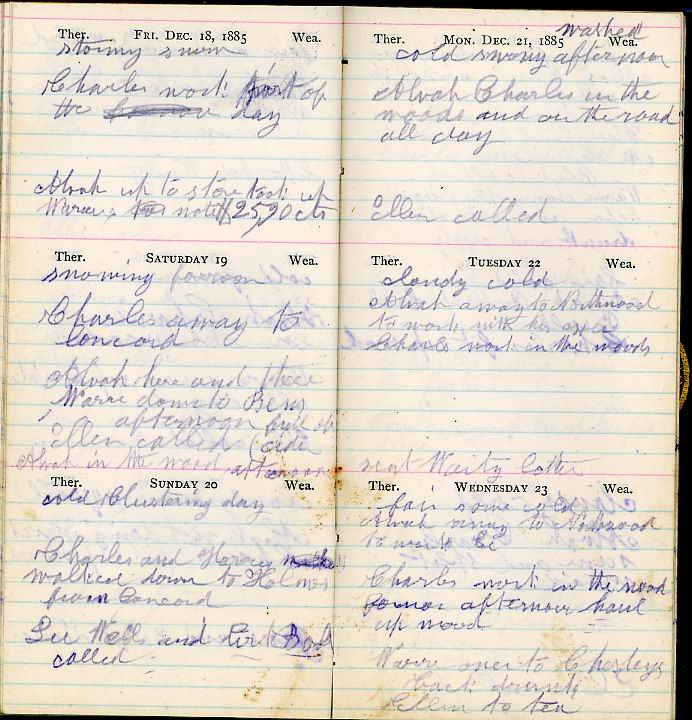 Ther. FRI. DEC. 18, 1885 Wea.
stormy snow
Charles work part of
the day
Alvah up to store took up
Warrens note $25,90 cts
Ther. SATURDAY 19 Wea.
snowing forenoon
Charles away to
Concord
Alvah here and there
Warre down to Bens
afternoon
Ellen called cider
Alvah in the wood afternoon
Ther. SUNDAY 20 Wea.
cold blustering day
Charles and
walked down to Holmes
from Concord
Lee Well and Gert Book
called
washed
Ther. MON. DEC. 21, 1885 Wea.
cold snowy afternoon
Alvah Charles in the
woods and on the road
all day
Ellen called
Ther. TUESDAY 22 Wea.
cloudy cold
Alvah away to Northwood
to work with his oxen
Charles work in the woods
sent Warty letter
Ther. WEDNESDAY 23 Wea.
fair some cold
Alvah away to Northwood
to work
Charles work in the wood
fornor afternoon haul
up wood
Warre over to Chesleys
back drunk
Ellen to tea